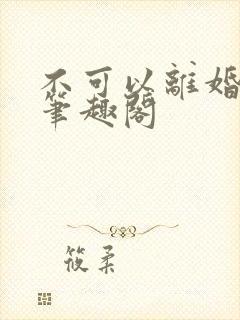 不可以離婚
筆趣閣
筱柔